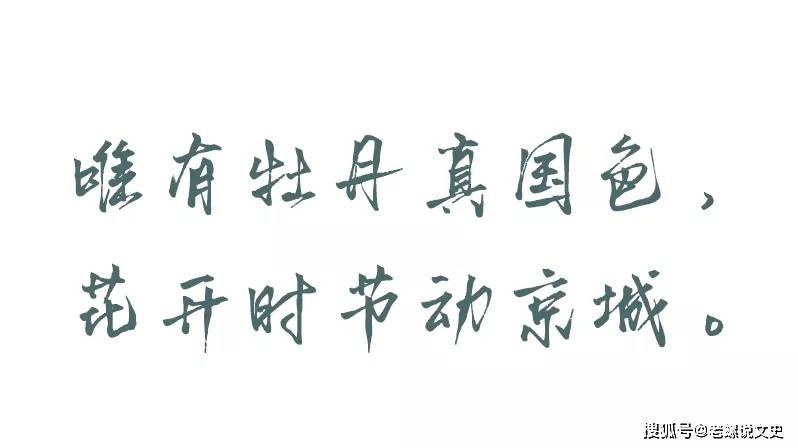 唯有牡丹真国色，
花开时节动京城。
搜狐号@老螺说文史